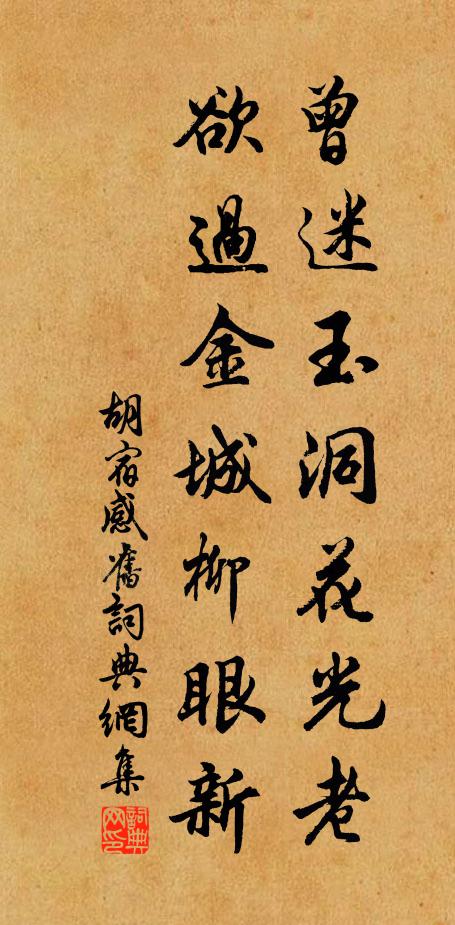 曾迷玉洞花光老
欲過金城柳眼新
胡宿感舊詞典網集
詞典網印